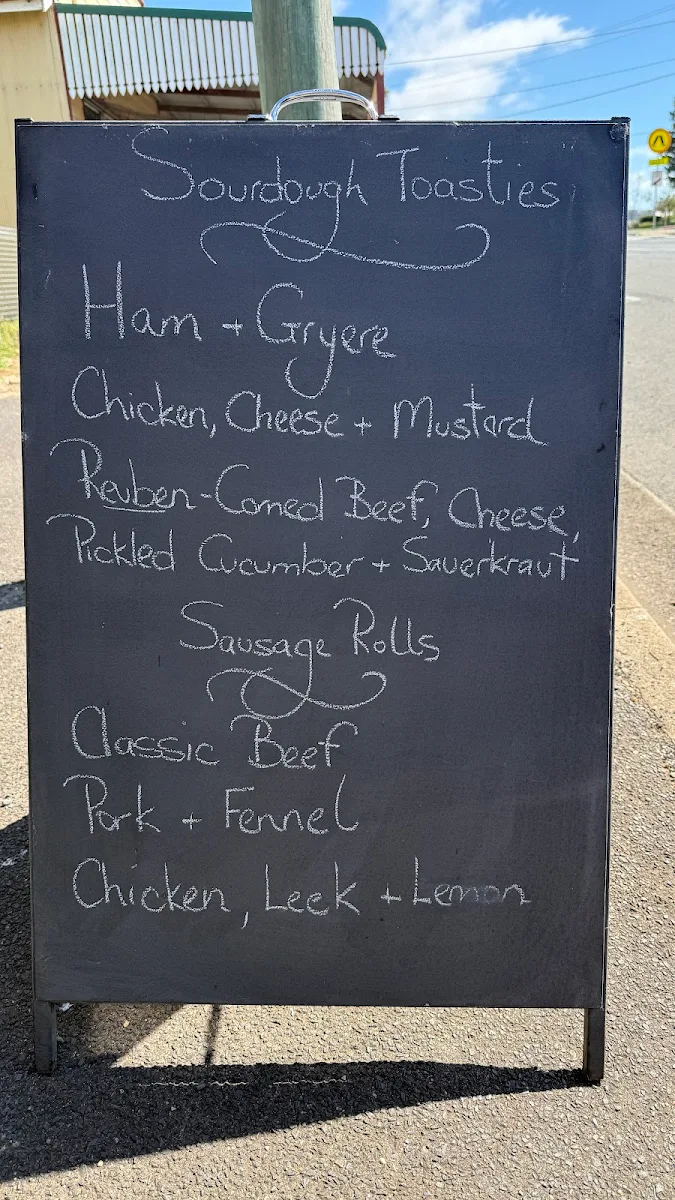 Sourdough Toasties
Ham + Gryere
Chicken, Cheese + Mustard
Reuben - Corned Beef, Cheese,
Pickled Cucumber + Sauerkraut
Sausage Rolls
Classic Beef
Pork + Fennel
Chicken, Leek + Lemon